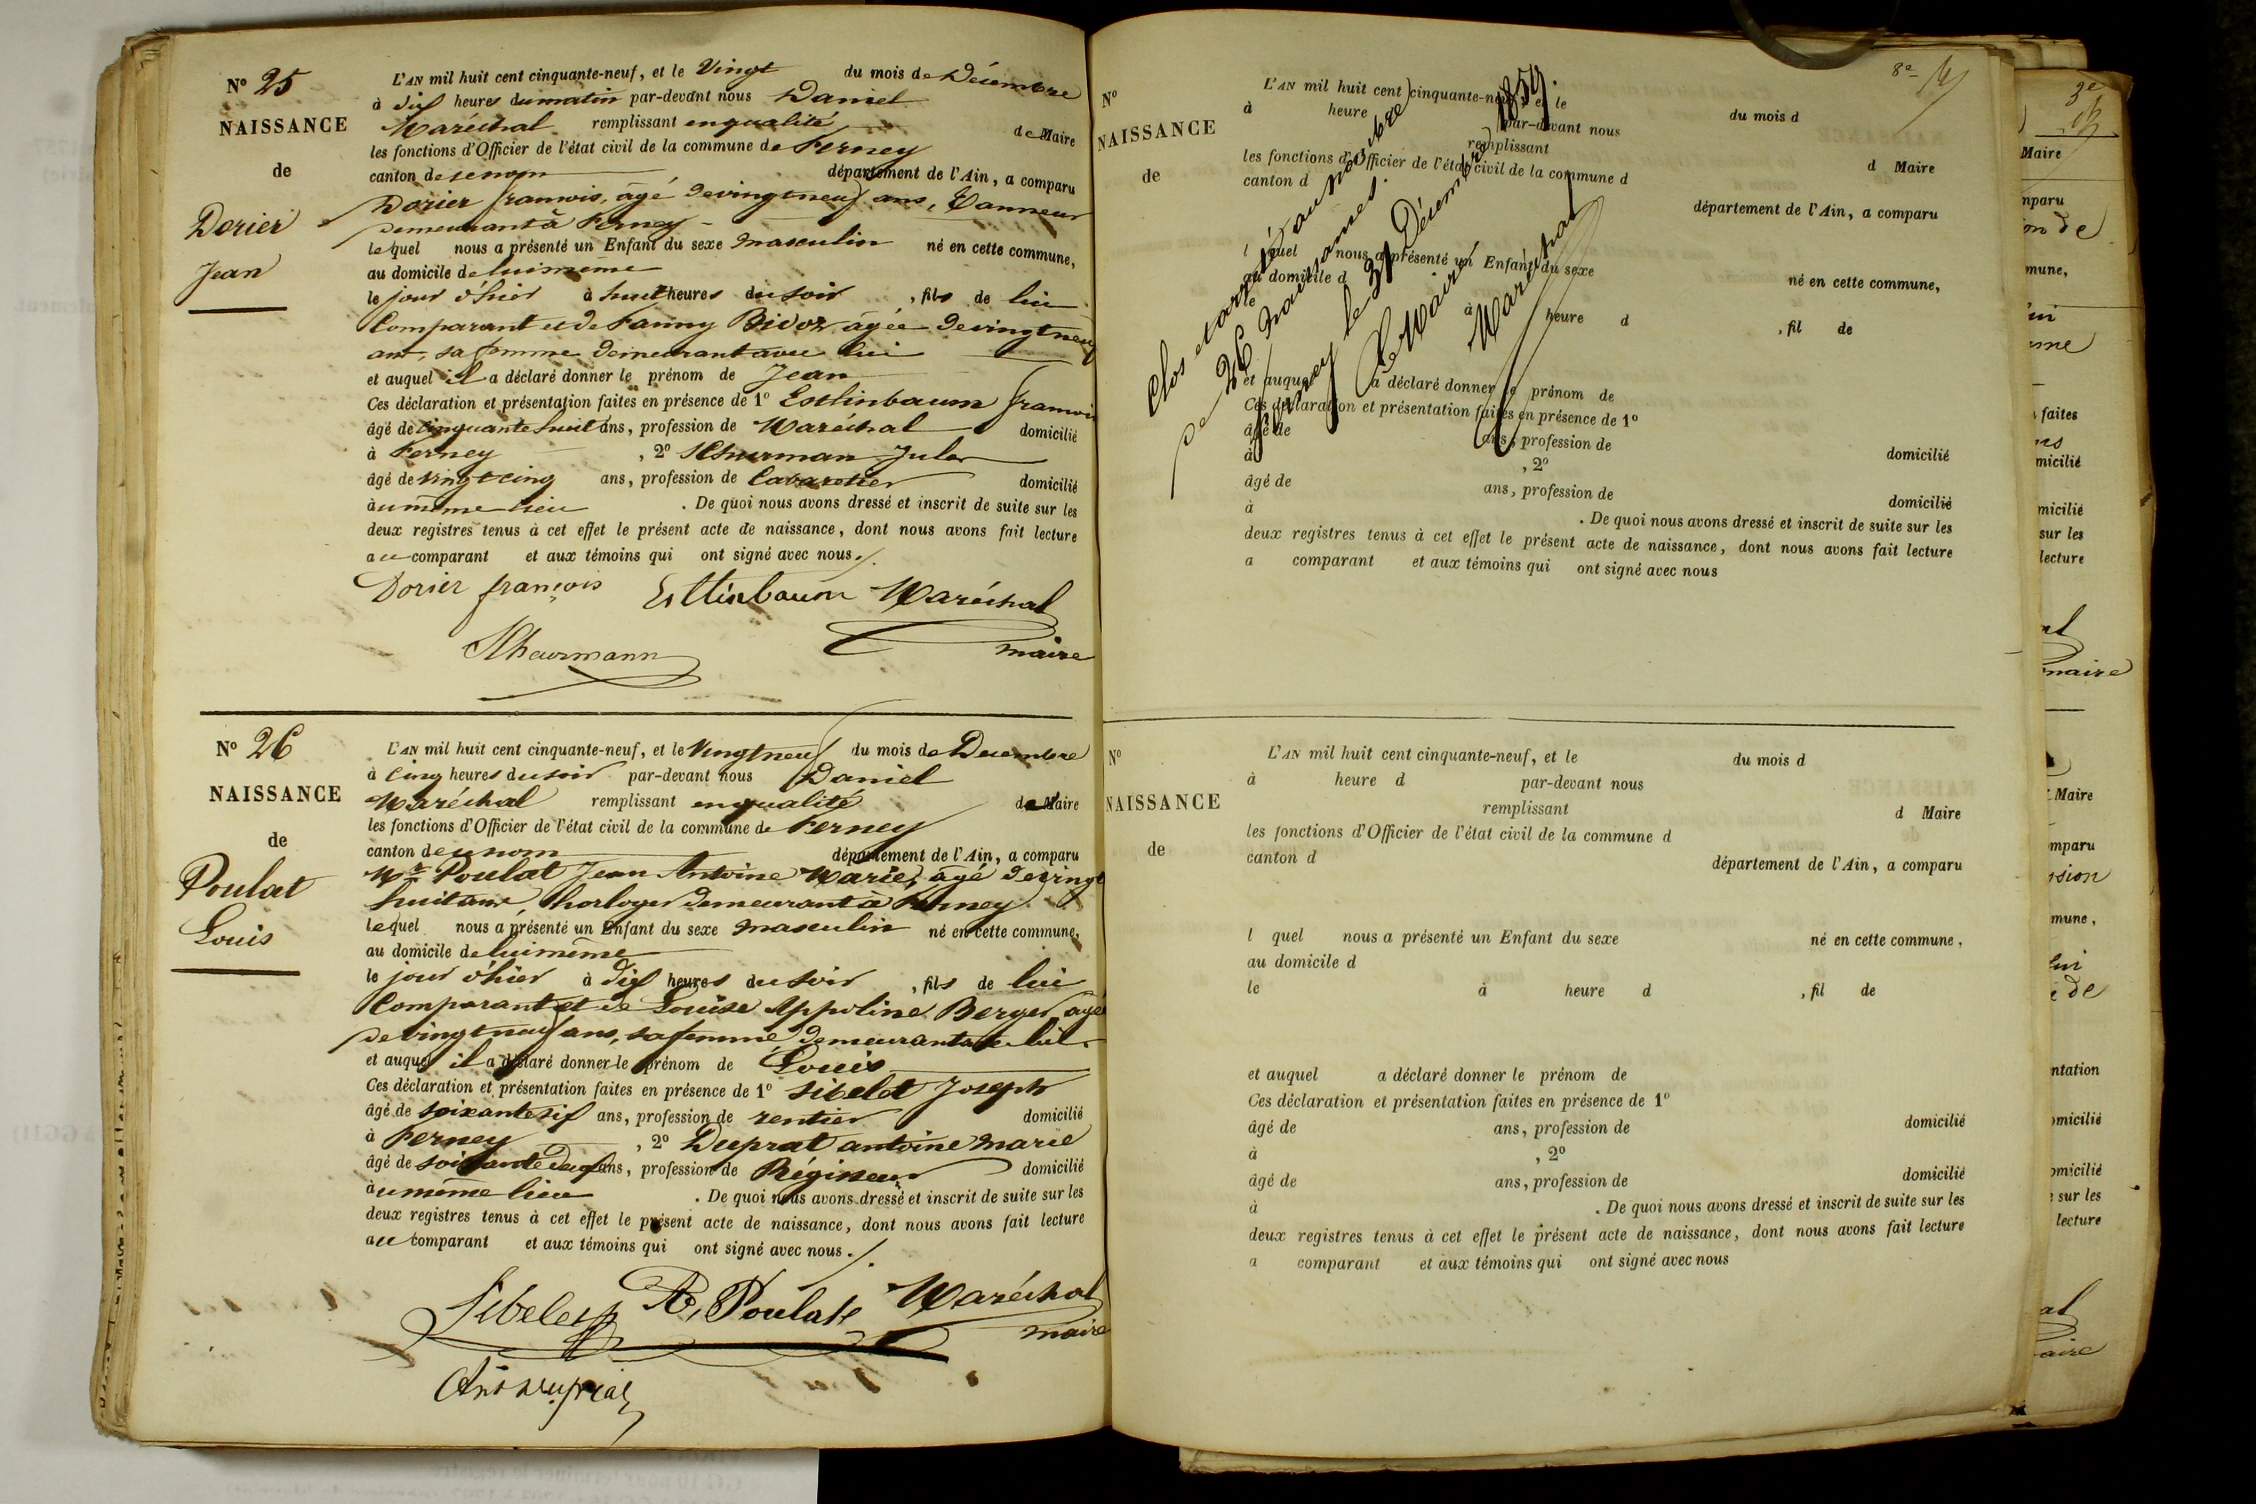 N° 25
NAISSANCE
de
Dorier
Jean
L'AN mil huit cent cinquante-neuf, et le Vingt du mois de Décembre
à dix heures du matin par-devant nous Daniel
Maréchal remplissant en qualité de Maire
les fonctions d'Officier de l'état civil de la commune de Ferney
canton de ce nom département de l'Ain, a comparu
Dorier francois, âgé de vingt neuf ans, Tanneur
demeurant à Ferney
lequel nous a présenté un Enfant du sexe masculin né en cette commune,
au domicile de lui même
le jour d'hier à huit heures du soir, fils de lui
Comparant et de Fanny Bidoz, âgée de vingt neuf
ans, sa femme demeurant avec lui
et auquel il a déclaré donner le prénom de Jean
Ces déclaration et présentation faites en présence de 1° Esslinbaum francois
âgé de cinquante huit ans, profession de Maréchal domicilié
à Ferney, 2° Schurman Jules
âgé de vingt cinq ans, profession de Cabaretier domicilié
au même lieu. De quoi nous avons dressé et inscrit de suite sur les
deux registres tenus à cet effet le présent acte de naissance, dont nous avons fait lecture
au comparant et aux témoins qui ont signé avec nous./.
Dorier françois Maréchal
maire
N° 26
NAISSANCE
de
Poulat
Louis
L'AN mil huit cent cinquante-neuf, et le Vingt neuf du mois de Décembre
à Cinq heures du soir par-devant nous Daniel
Maréchal remplissant en qualité de Maire
les fonctions d'Officier de l'état civil de la commune de Ferney
canton de ce nom département de l'Ain, a comparu
Mr Poulat Jean Antoine Marie, âgé de vingt
huit ans, horloger demeurant à Ferney
lequel nous a présenté un Enfant du sexe masculin né en cette commune,
au domicile de lui même
le jour d'hier à dix heures du soir, fils de lui
Comparant et de Louise Appoline Berger, âgée
de vingt neuf ans, sa femme demeurant avec lui
et auquel il a déclaré donner le prénom de Louis
Ces déclaration et présentation faites en présence de 1° Sibelet Joseph
âgé de soixante six ans, profession de rentier domicilié
à Ferney, 2° Duprat antoine marie
âgé de soixante deux ans, profession de Régisseur domicilié
au même lieu. De quoi nous avons dressé et inscrit de suite sur les
deux registres tenus à cet effet le présent acte de naissance, dont nous avons fait lecture
au comparant et aux témoins qui ont signé avec nous./.
Sibelet A, Poulat Maréchal
maire
8e
N°
NAISSANCE
de
L'AN mil huit cent cinquante-neuf, et le du mois d
à heure par-devant nous
remplissant d Maire
les fonctions d'Officier de l'état civil de la commune d
canton d département de l'Ain, a comparu
l quel nous a présenté un Enfant du sexe né en cette commune,
au domicile d
le à heure d, fil de
et auquel a déclaré donner le prénom de
Ces déclaration et présentation faites en présence de 1°
âgé de ans, profession de domicilié
à, 2°
âgé de ans, profession de domicilié
à. De quoi nous avons dressé et inscrit de suite sur les
deux registres tenus à cet effet le présent acte de naissance, dont nous avons fait lecture
a comparant et aux témoins qui ont signé avec nous
Clos et arrêté au nombre
de 26 naissances.
Ferney le 31 Décembre 1859.
Le Maire
Maréchal
N°
NAISSANCE
de
L'AN mil huit cent cinquante-neuf, et le du mois d
à heure d par-devant nous
remplissant d Maire
les fonctions d'Officier de l'état civil de la commune d
canton d département de l'Ain, a comparu
l quel nous a présenté un Enfant du sexe né en cette commune,
au domicile d
le à heure d, fil de
et auquel a déclaré donner le prénom de
Ces déclaration et présentation faites en présence de 1°
âgé de ans, profession de domicilié
à, 2°
âgé de ans, profession de domicilié
à. De quoi nous avons dressé et inscrit de suite sur les
deux registres tenus à cet effet le présent acte de naissance, dont nous avons fait lecture
a comparant et aux témoins qui ont signé avec nous